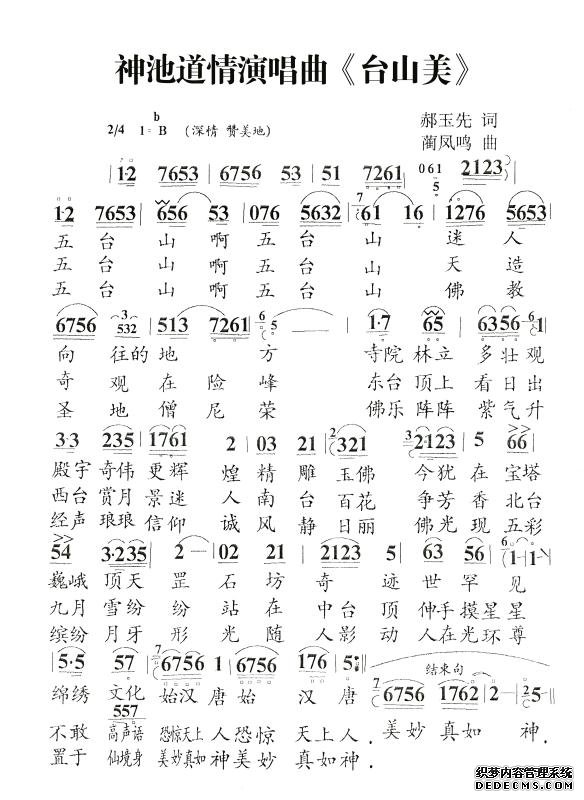 神池道情演唱曲《台山美》
2/4 1=bB (深情 赞美地)
郝玉先 词
蔺凤鸣 曲
|1·2 7653|6756 53|51 7261|061 5 2123|
|1·2 7653|656 53|076 5632|7 61 16|1276 5653|
五台山啊五台山迷人
五台山啊五台山天造
五台山啊五台山佛教
6756 3 532|513 7261|6 5 5—|1·7 65|6356 6 1|
向往的地方 寺院林立多壮观
奇观在险峰 东台顶上看日出
圣地僧尼荣 佛乐阵阵紫气升
3·3 235|1761 2|03 21|2 321 3 2123|5 66|
殿宇奇伟更辉煌精雕玉佛今犹在宝塔
西台赏月景迷人南台百花争芳香北台
经声琅琅信仰诚风静日丽佛光现五彩
54 3·235|2—|02 21|2123 5|63 56|6 1—1|
巍峨顶天罡石坊奇迹世罕见
九月雪纷纷站在中台顶伸手摸星星
缤纷月牙形光随人影动人在光环尊
|5·5 57|7 6756 1|6756 176|5·
结束句
7 6756 1762|2—|2 5—|
绵绣文化始汉唐始汉唐
557
不敢高声语恐惊天上人恐惊天上人. 美妙真如神.
置于仙境身美妙真如神美妙真如神.
织梦内容管理系统
DEDECMS.COM